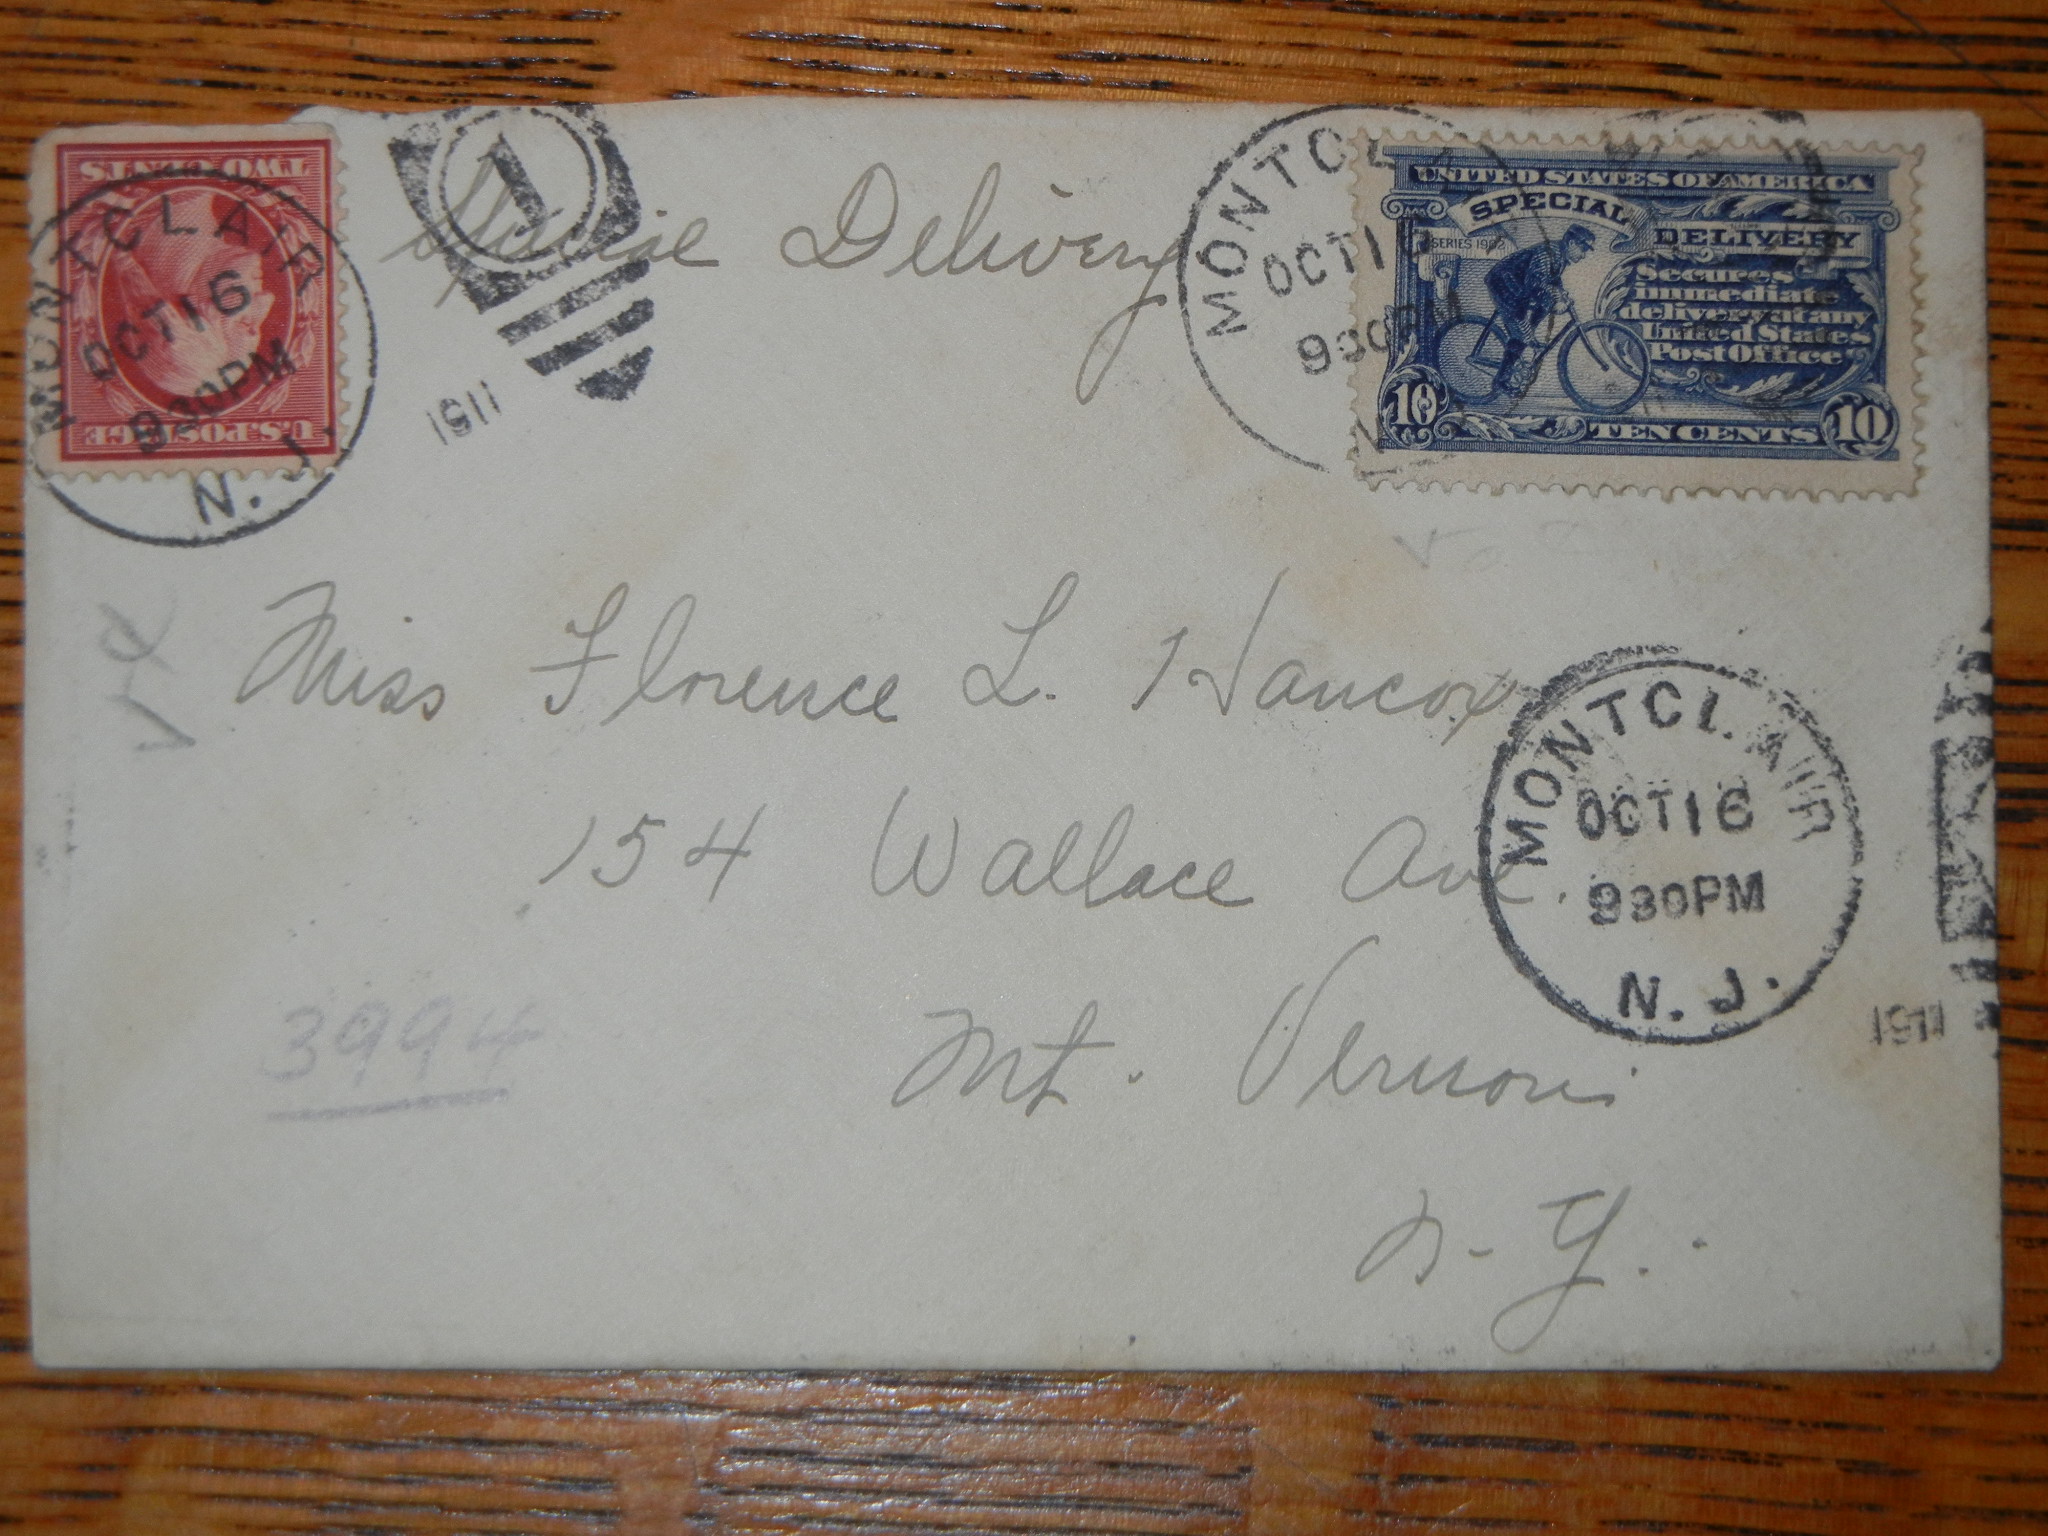 TWO CENTS
U.S. POSTAGE
MONTCLAIR
OCT 16
930PM
N. J.
1
1911
Special Delivery
MONTCLAIR
OCT 16
930PM
UNITED STATES OF AMERICA
SPECIAL
DELIVERY
SERIES 1902
Secures
immediate
delivery at any
United States
Post Office
10 TEN CENTS 10
Miss Florence L. Hancox
154 Wallace Ave.
Mt. Vernon
N. Y.
MONTCLAIR
OCT 16
930PM
N. J.
1911
3994